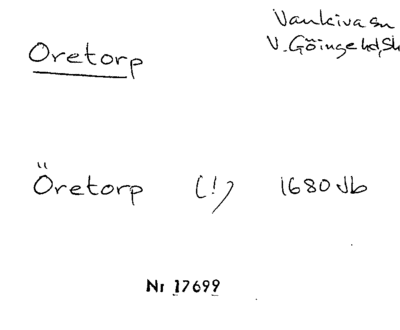 Oretorp
Vankiva sn
V. Göinge hd, Sk
Öretorp (!) 1680 Jb
Nr 17699